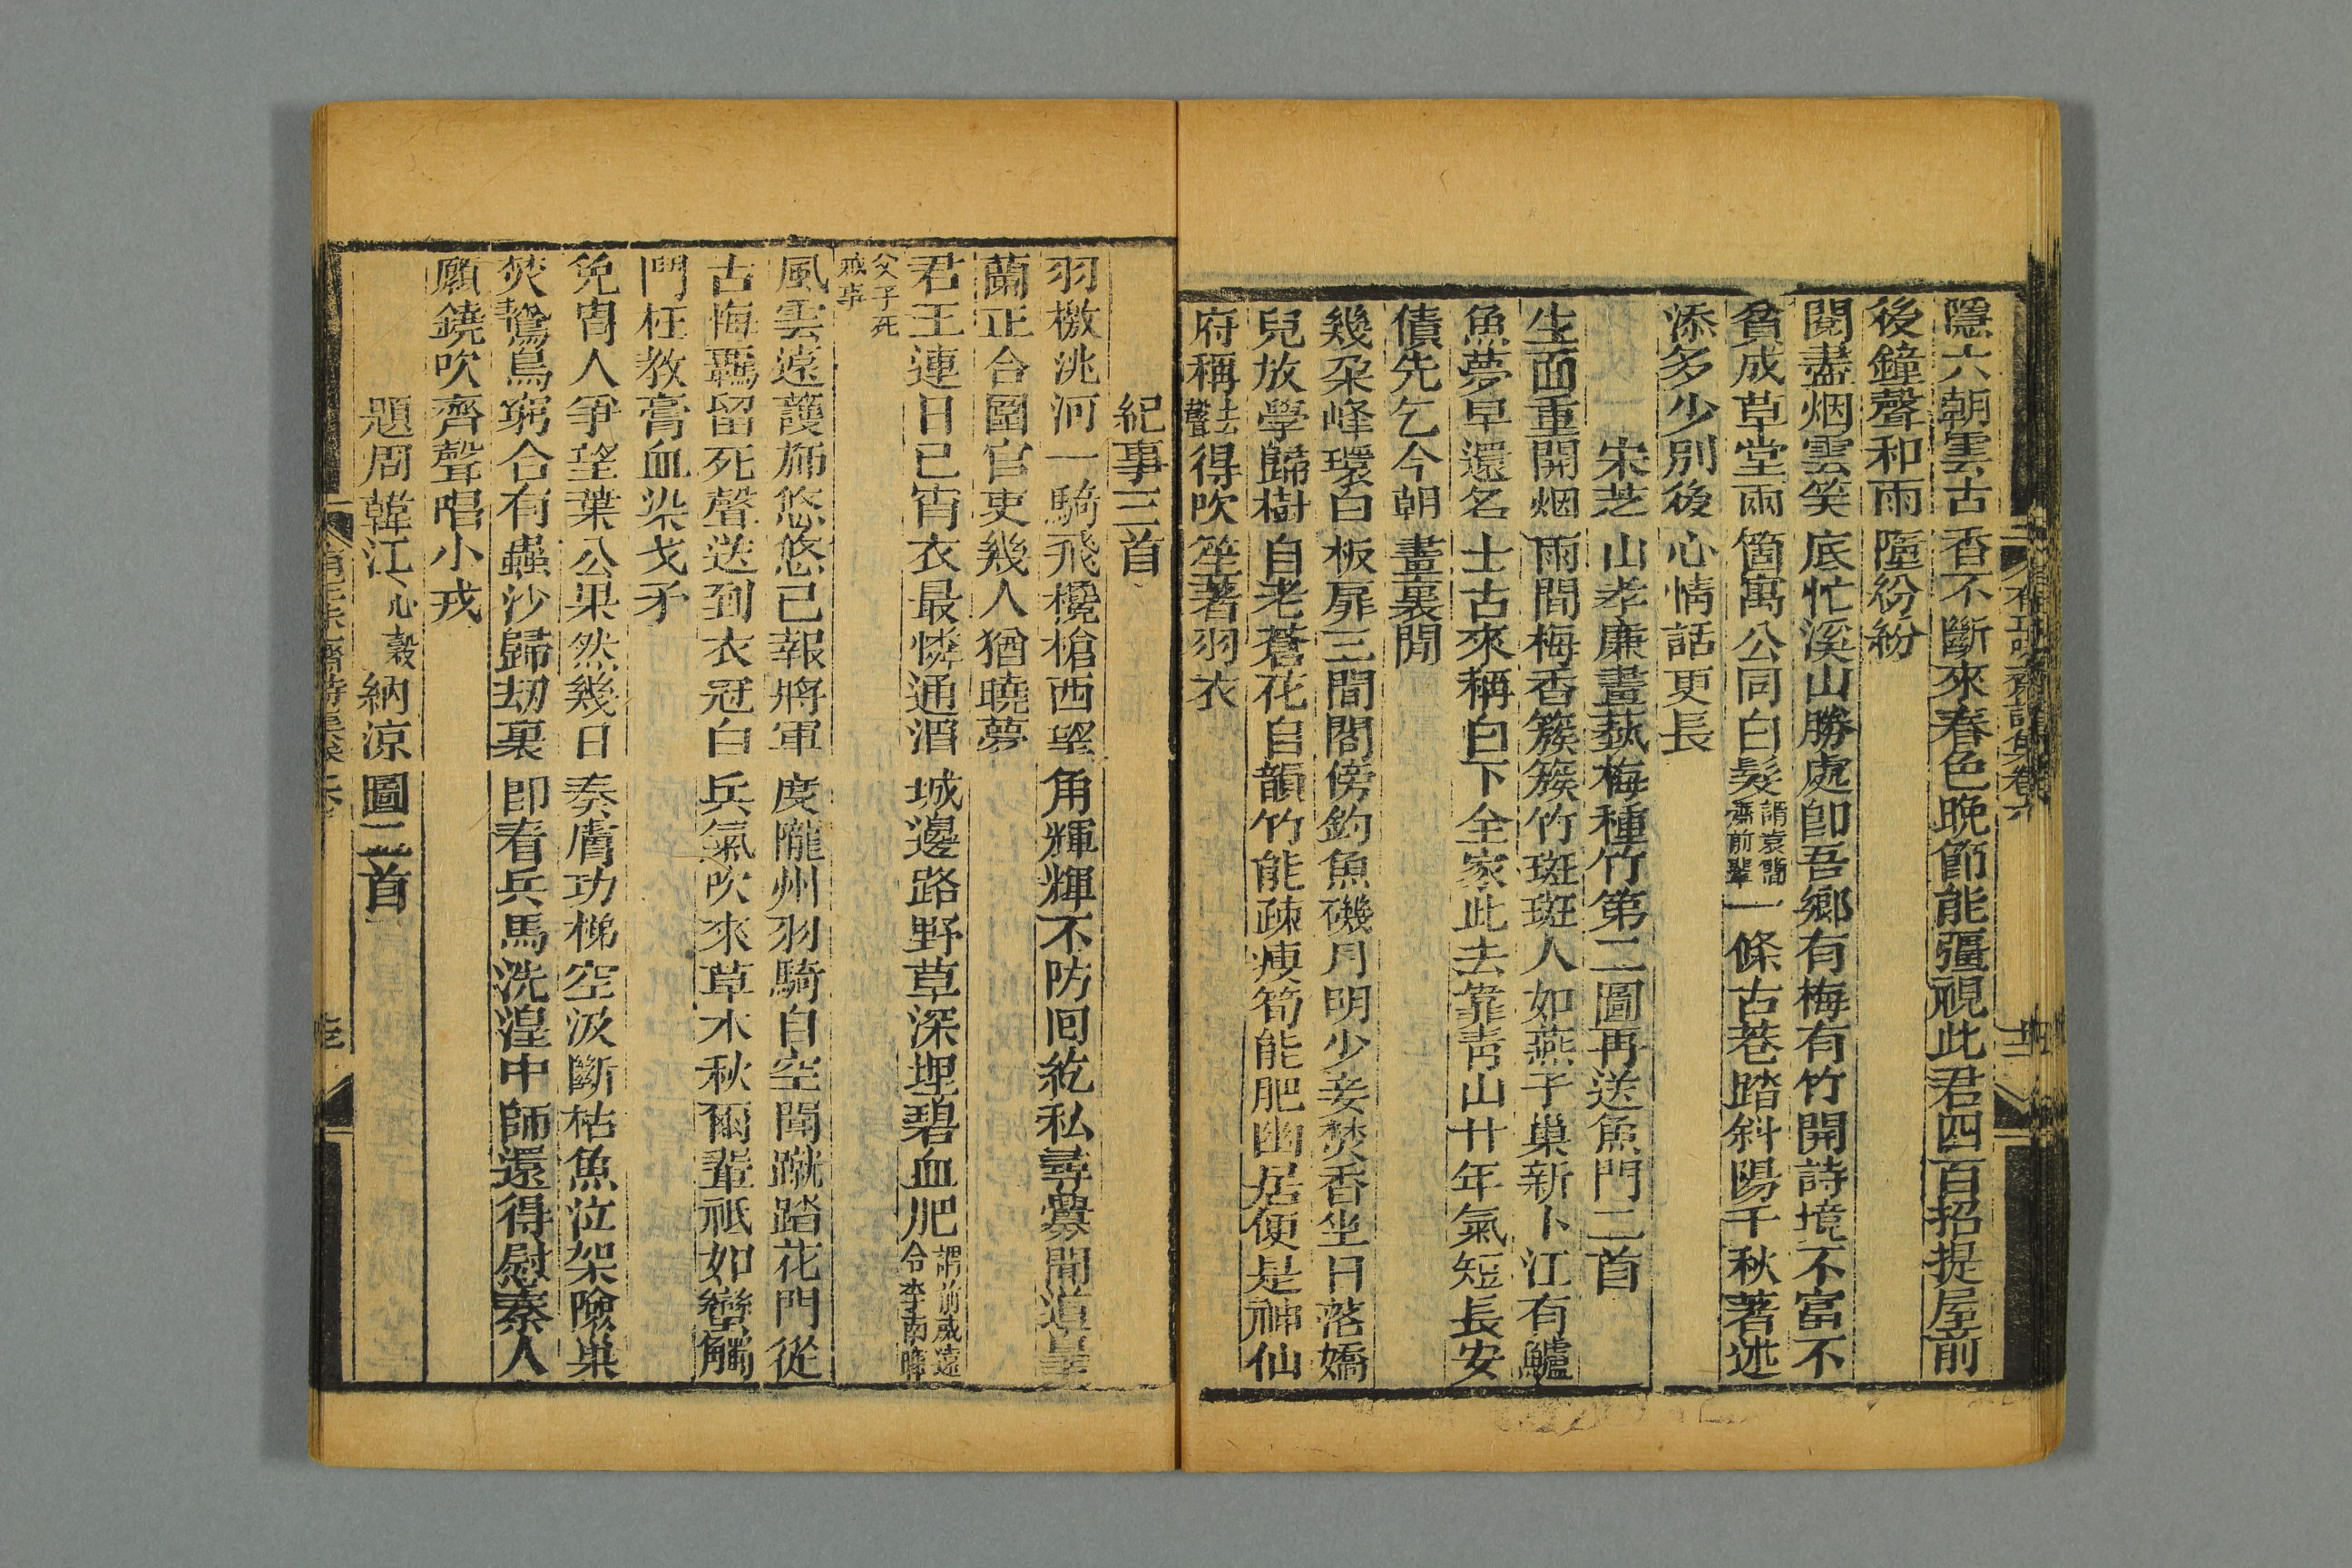 隱六朝雲古香不斷來春色晚節能彊視此君四百招提屋前
後鐘聲和雨墮紛紛
閱盡烟雲笑底忙溪山勝處卽吾鄉有梅有竹開詩境不富不
貧成草堂兩箇寓公同白髮謂袁簡齋前輩一條古巷踏斜陽千秋著述
添多少別後心情話更長
宋芝山孝廉畫蓺梅種竹第二圖再送魚門二首
生面重開烟雨間梅香簇簇竹斑斑人如燕子巢新卜江有鱸
魚夢早還名士古來稱白下全家此去靠靑山廿年氣短長安
債先乞今朝畫裏閒
幾朶峰環白板扉三間閣傍釣魚磯月明少妾焚香坐日落嬌
兒放學歸樹自老蒼花自韻竹能疎瘦筍能肥幽居便是神仙
府稱去聲得吹笙著羽衣
紀事三首
羽檄洮河一騎飛欃槍西望角輝輝不防囘紇私尋釁聞道皋
蘭正合圍官吏幾人猶曉夢
君王連日已宵衣最憐通渭城邊路野草深埋碧血肥謂前威遠令李南暉
父子死戒事
風雲遠護旆悠悠已報將軍度隴州羽騎自空聞蹴踏花門從
古悔羈留死聲送到衣冠白兵氣吹來草木秋爾輩祇如蠻觸
鬥枉敎膏血染戈矛
免冑人爭望葉公果然幾日奏膚功梯空汲斷枯魚泣架險巢
焚鷙鳥窮合有蟲沙歸劫裏卽看兵馬洗湟中師還得慰秦人
願鐃吹齊聲唱小戎
題周韓江心榖納涼圖二首